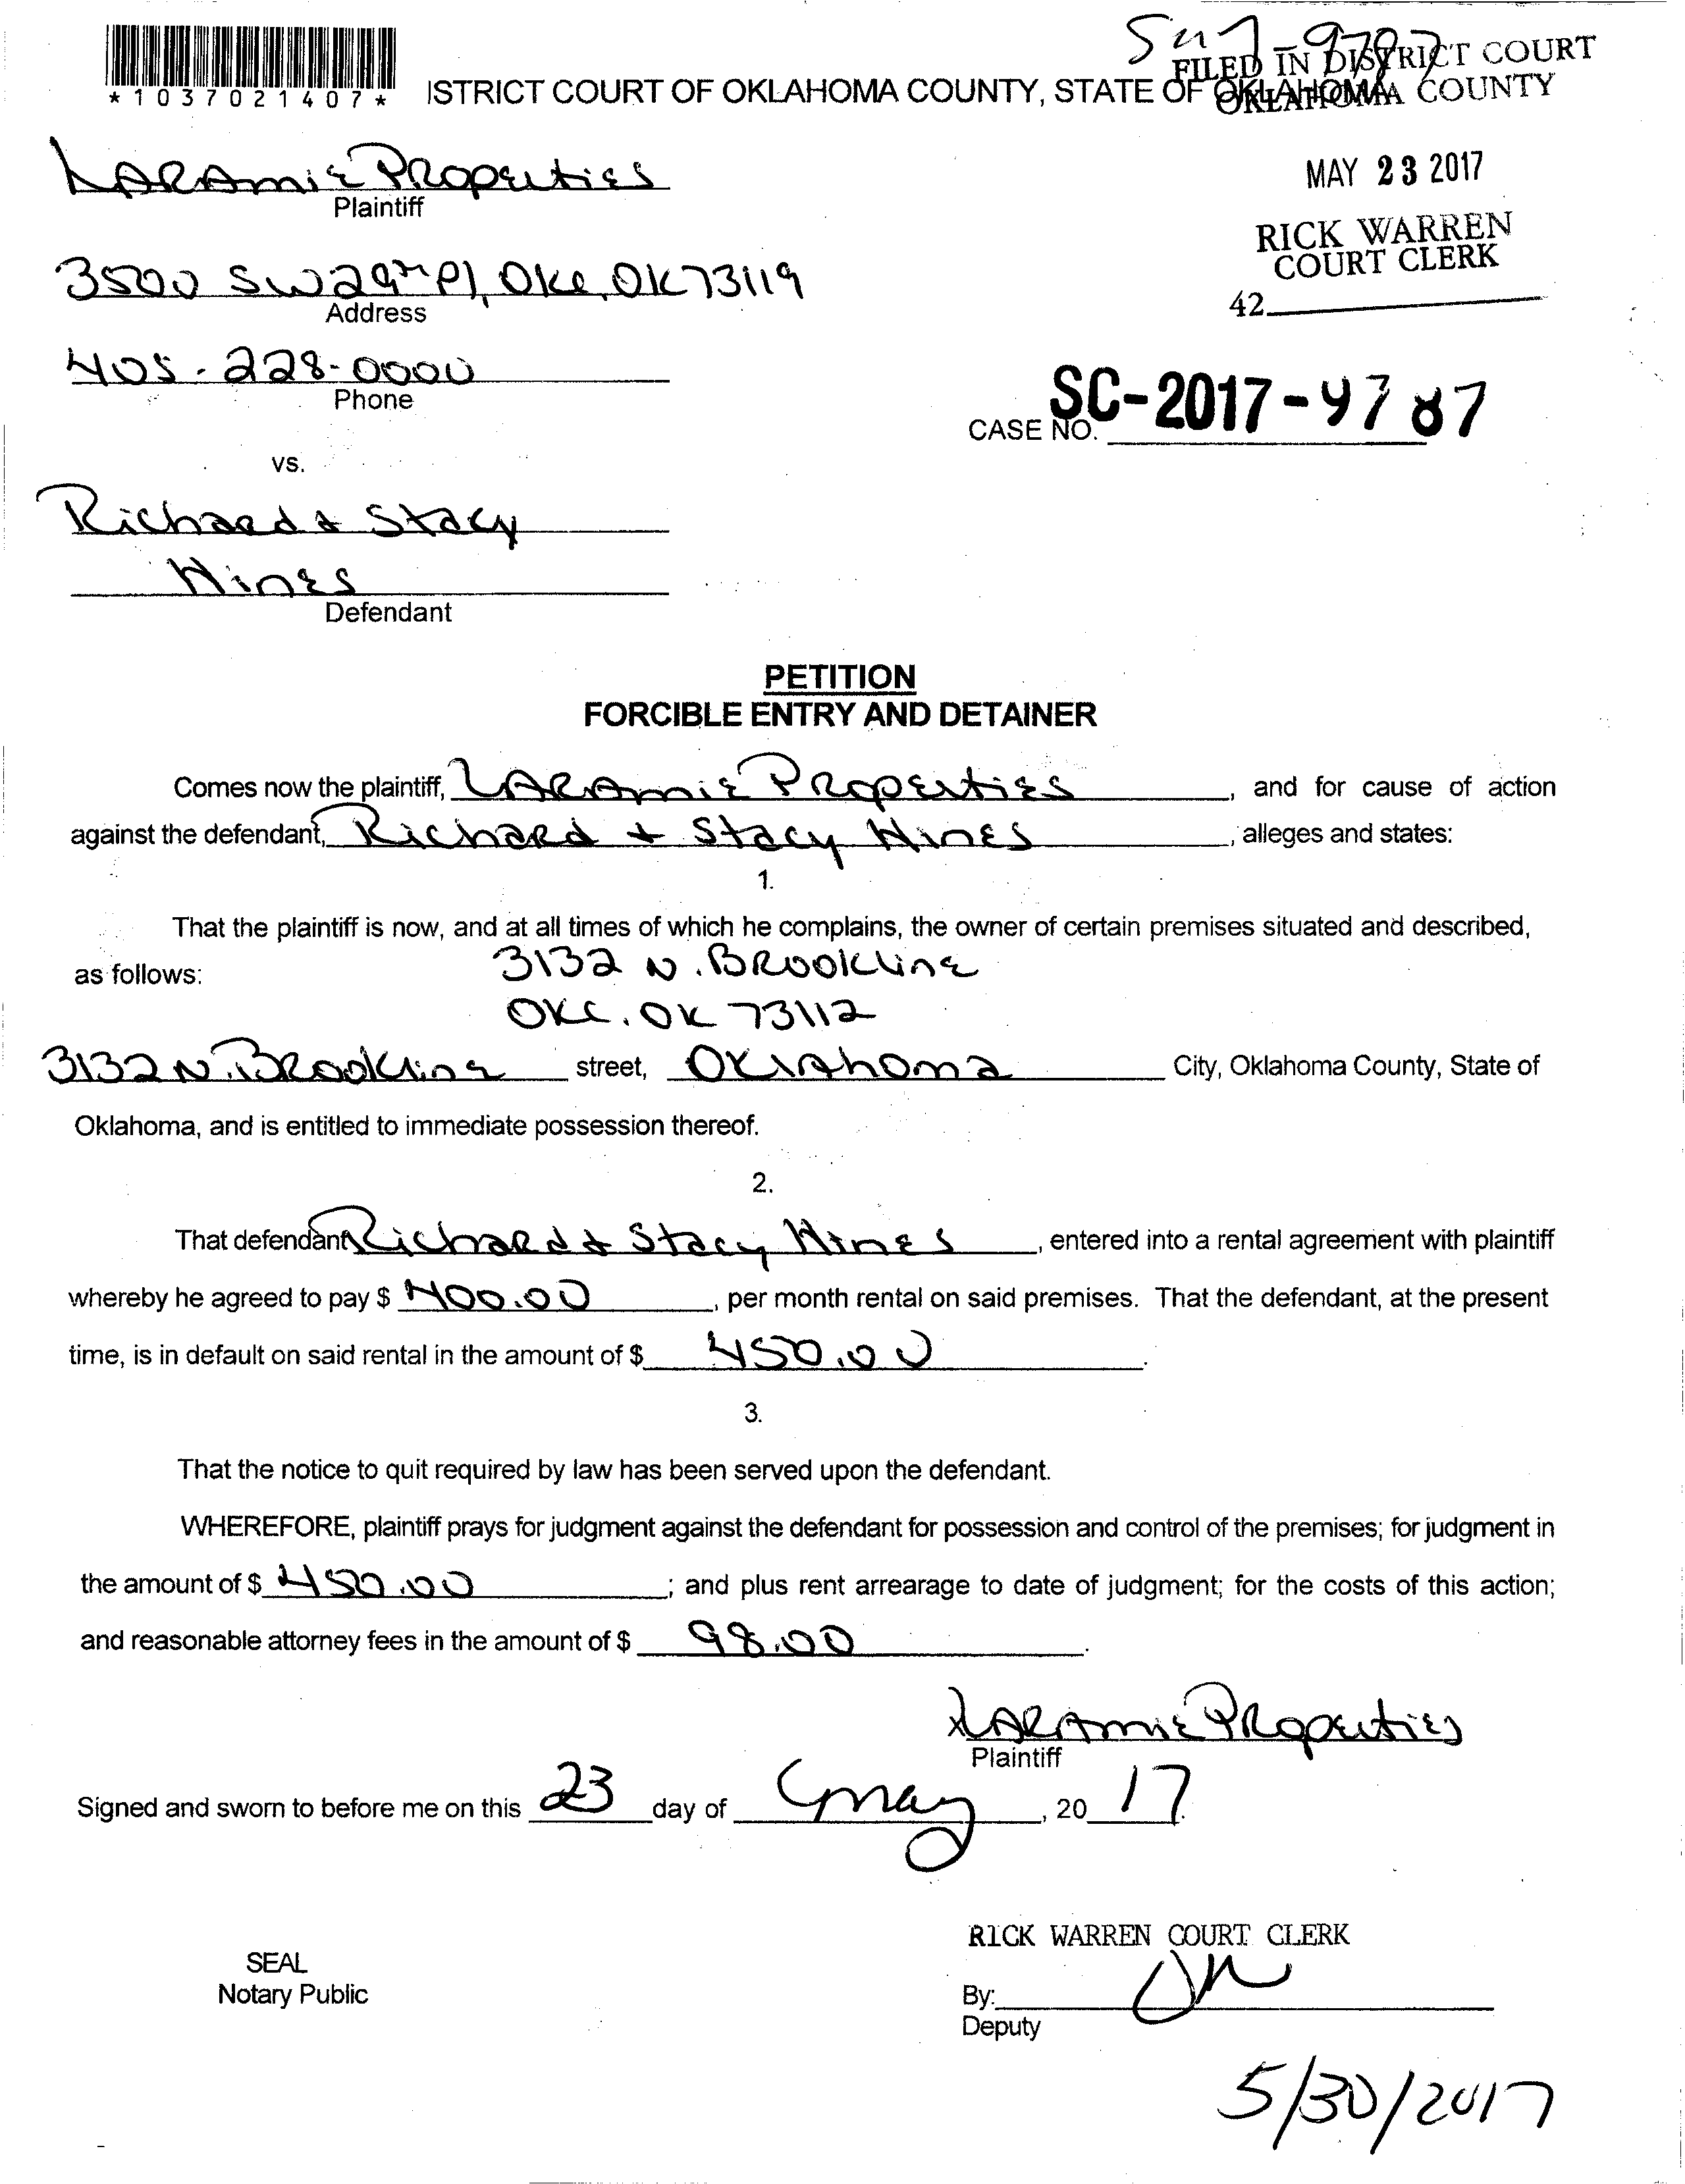 SC17-9787
FILED IN DISTRICT COURT
*1037021407* ISTRICT COURT OF OKLAHOMA COUNTY, STATE OF OKLAHOMA
OKLAHOMA COUNTY
LARAmiE PROpERtiES
Plaintiff
MAY 23 2017
RICK WARREN
COURT CLERK
3500 SW 29th Pl, OKC, OK 73119
Address
42
405-228-0000
Phone
CASE NO. SC-2017-9787
vs.
Richard & Stacy
HinES
Defendant
PETITION
FORCIBLE ENTRY AND DETAINER
Comes now the plaintiff, LARAmiE PROpERtiES, and for cause of action
against the defendant, Richard + Stacy HinES, alleges and states:
1.
That the plaintiff is now, and at all times of which he complains, the owner of certain premises situated and described,
as follows: 3132 N. BROOKLinE
OKC. OK 73112
3132 N. BROOKLinE street, OKlAhoma City, Oklahoma County, State of
Oklahoma, and is entitled to immediate possession thereof.
2.
That defendant Richard & Stacy HinES, entered into a rental agreement with plaintiff
whereby he agreed to pay $ 400.00, per month rental on said premises. That the defendant, at the present
time, is in default on said rental in the amount of $ 450.00.
3.
That the notice to quit required by law has been served upon the defendant.
WHEREFORE, plaintiff prays for judgment against the defendant for possession and control of the premises; for judgment in
the amount of $ 450.00; and plus rent arrearage to date of judgment; for the costs of this action;
and reasonable attorney fees in the amount of $ 98.00.
LARAmiE PROpERtiES
Plaintiff
Signed and sworn to before me on this 23 day of May, 20 17.
RICK WARREN COURT CLERK
SEAL
Notary Public
By:
Deputy
5/30/2017